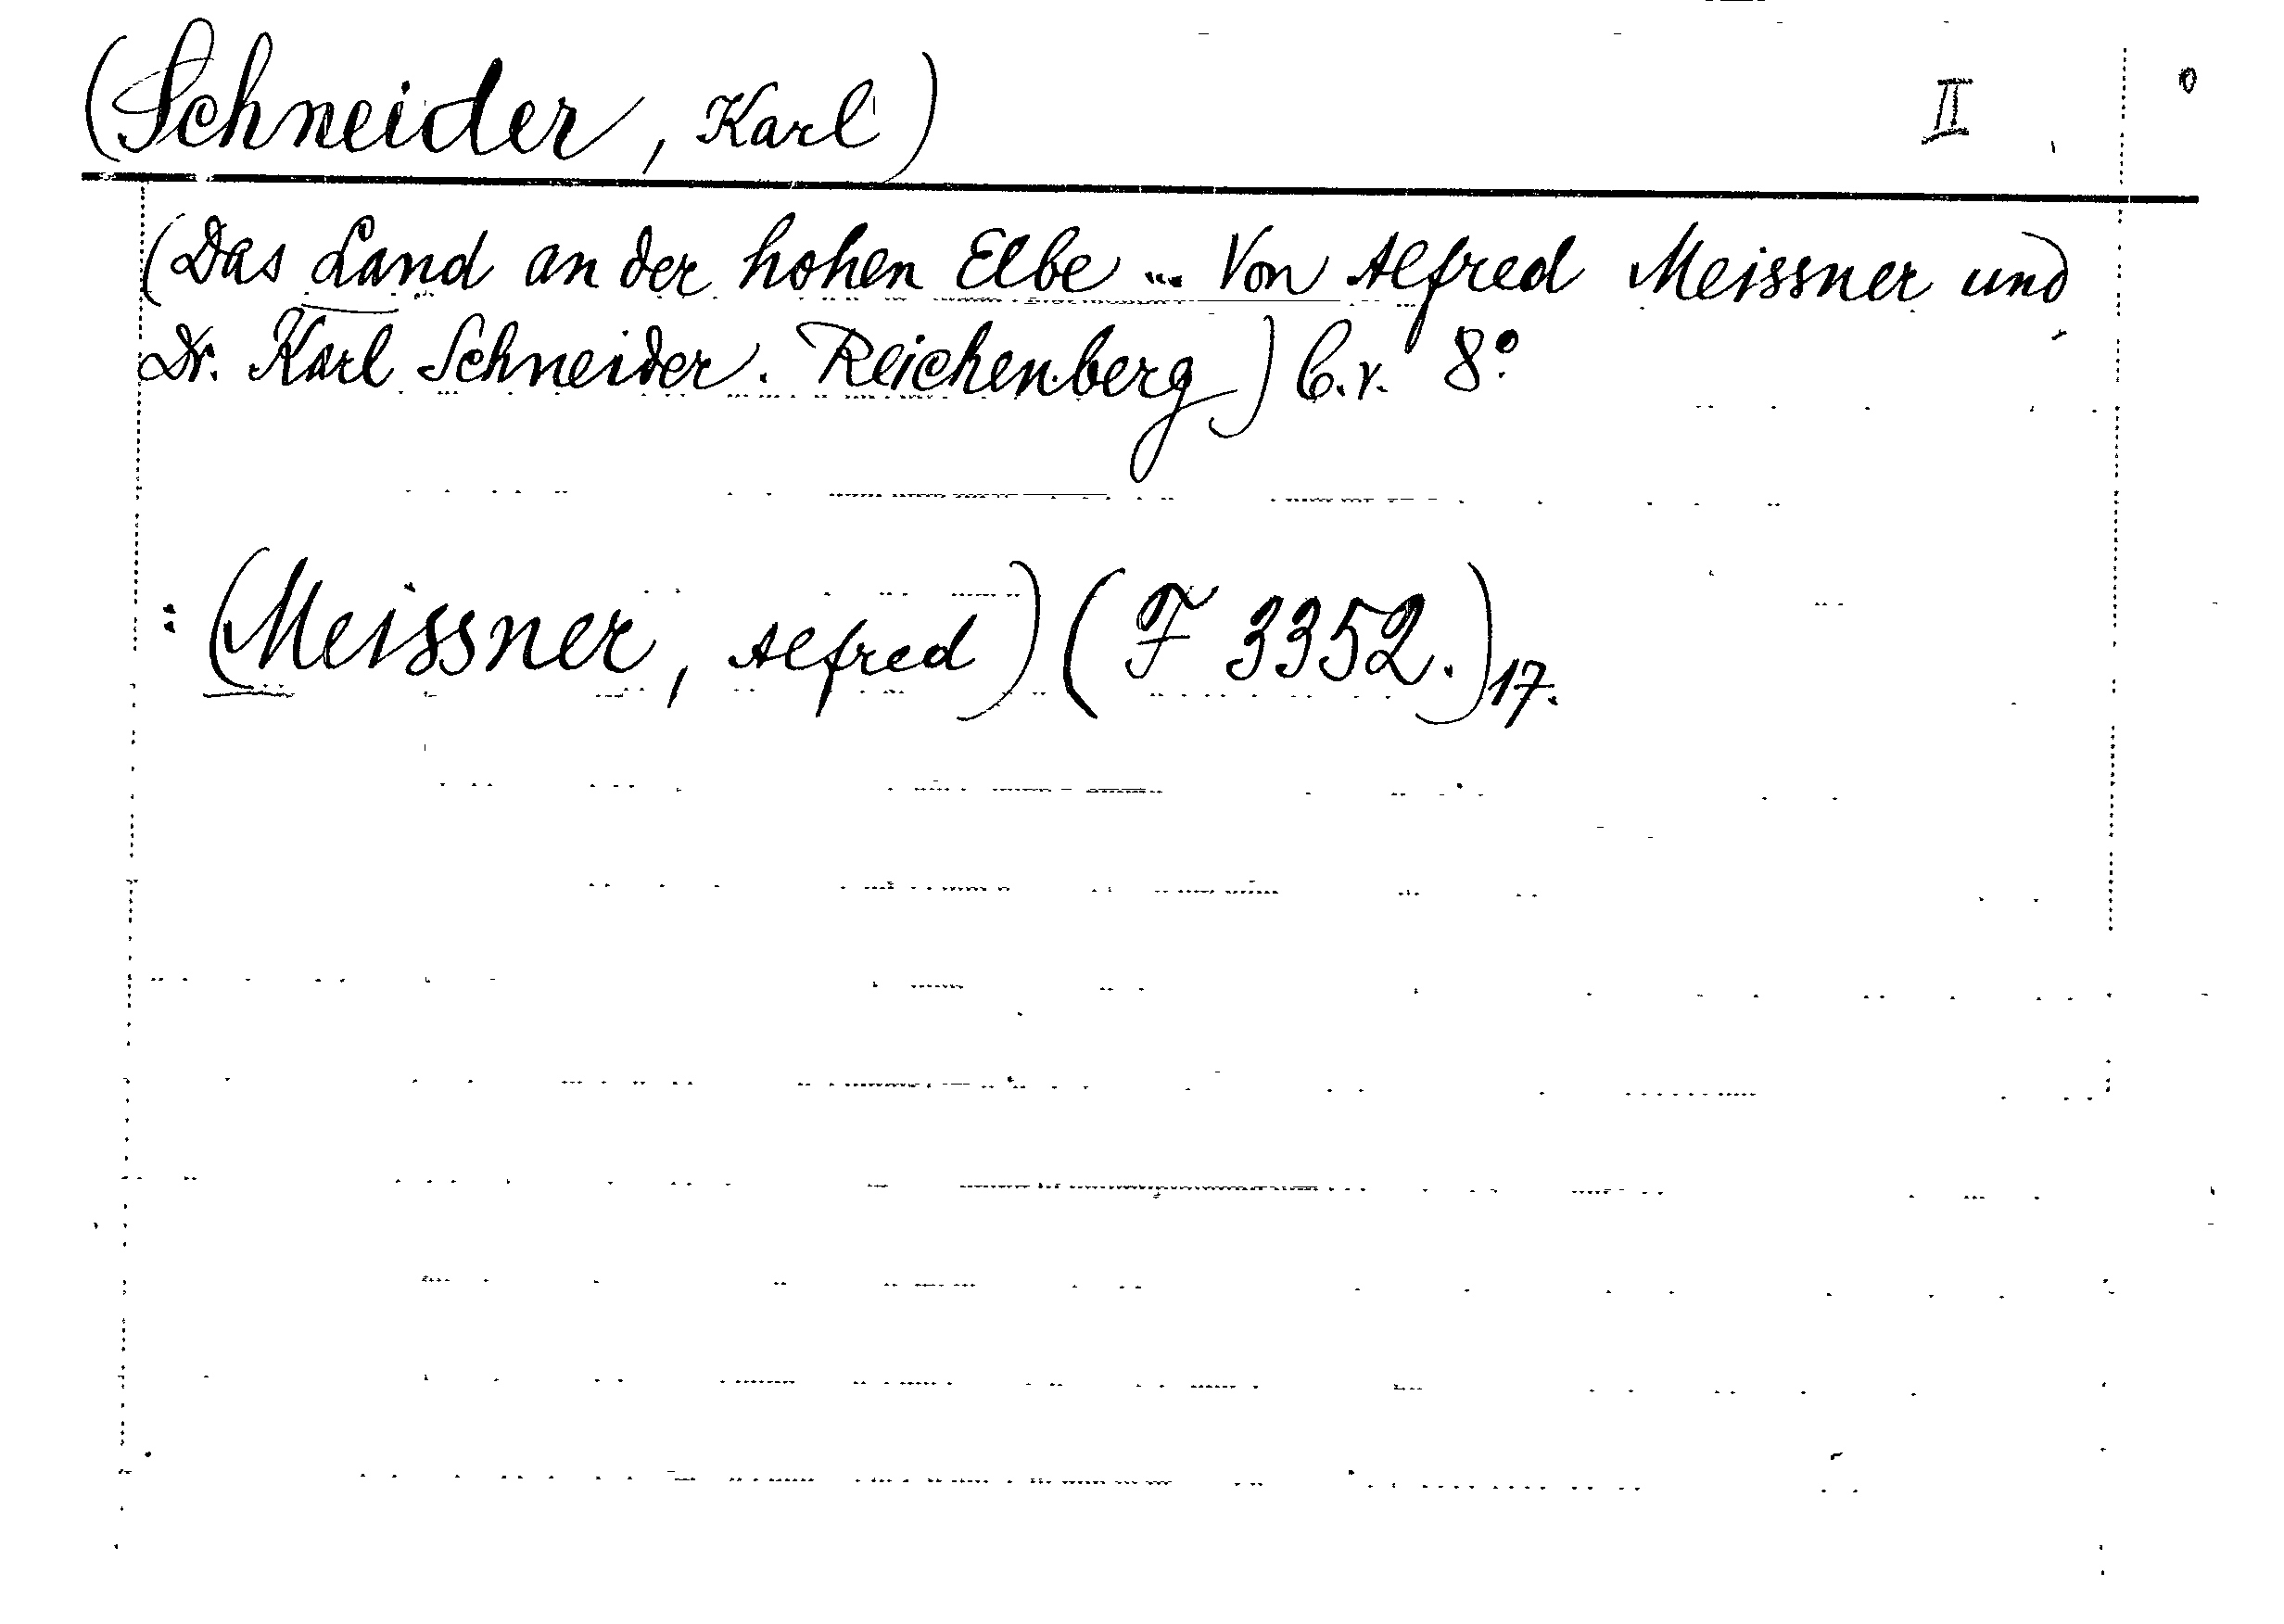 (Schneider, Karl) II
(Das Land an der hohen Elbe ... Von Alfred Meissner und
Dr. Karl Schneider. Reichenberg) b.r. 8°
: (Meissner, Alfred) (F 3352.) 17.